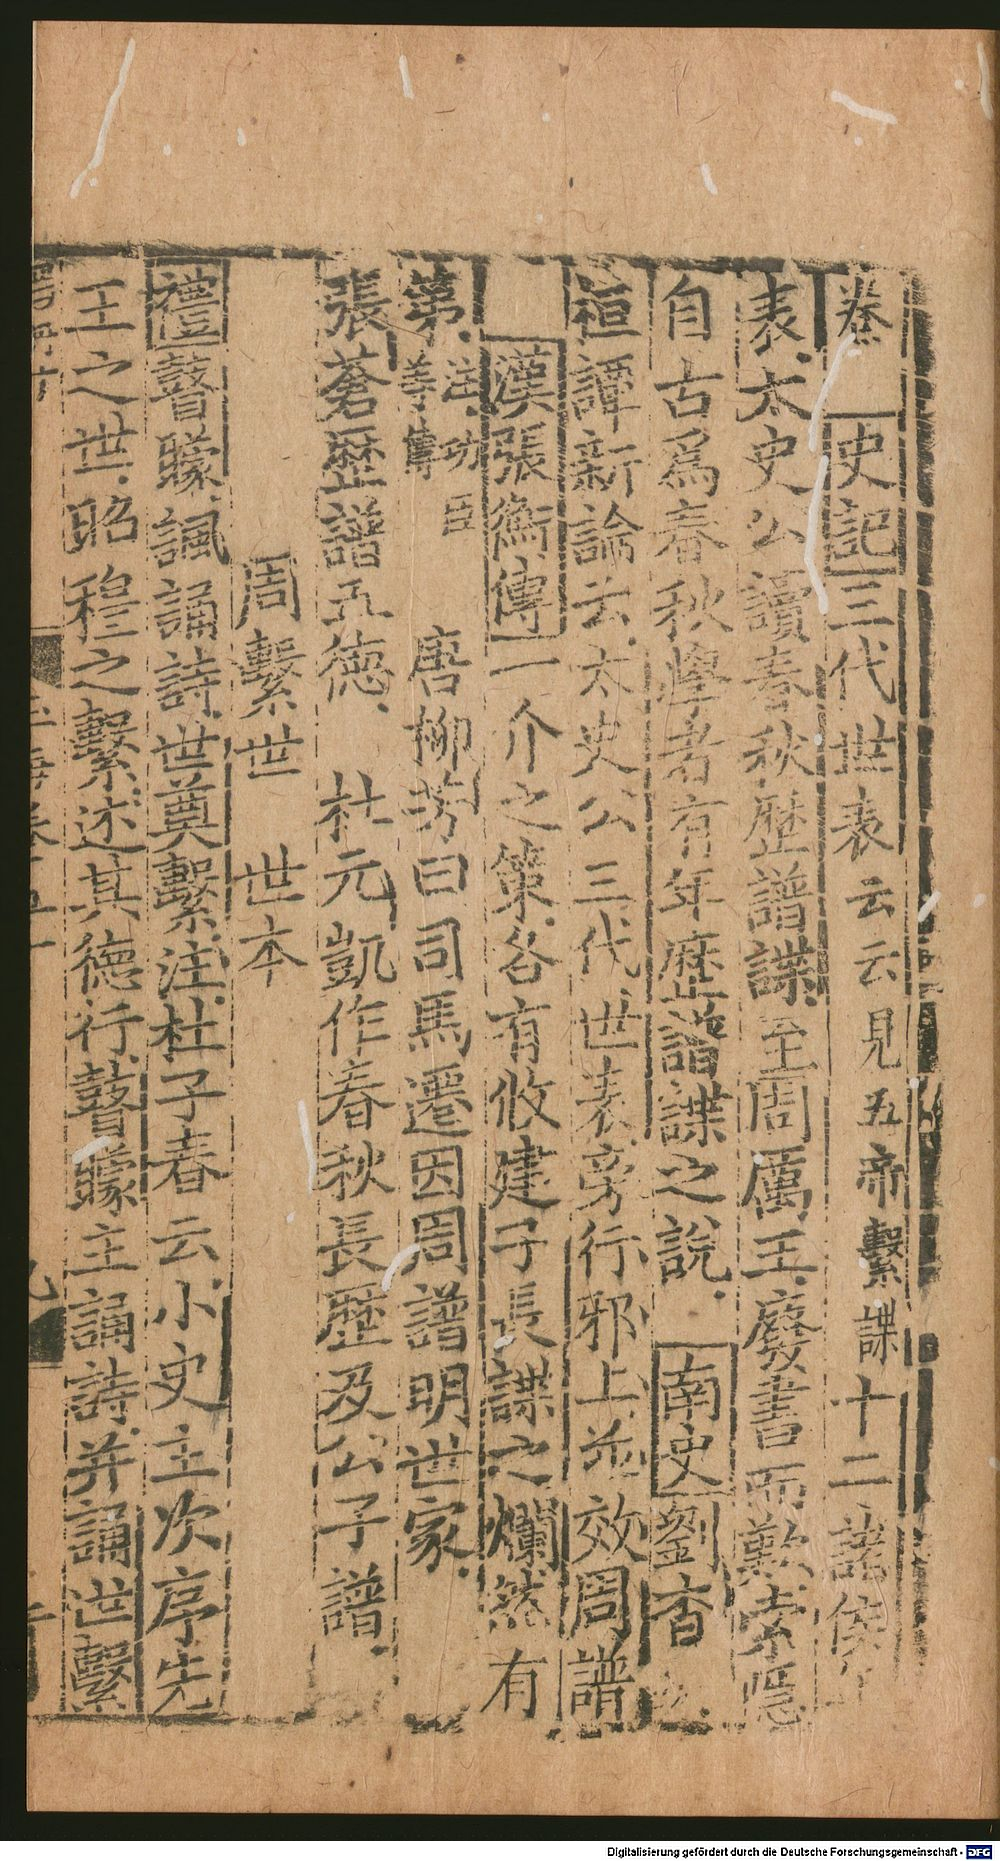 卷　史記三代世表云云見五帝繫諜十二諸侯年
表太史公讀春秋歷譜諜至周厲王廢書而歎索隱
自古爲春秋學者有年歷譜諜之說　南史劉杳云
桓譚新論云太史公三代世表旁行邪上並效周譜
漢張衡傳一介之策各有攸建子長諜之爛然有
第注功臣等傳　唐柳芳曰司馬遷因周譜明世家
張蒼歷譜五德　杜元凱作春秋長歷及公子譜
周繫世　世本
禮瞽矇諷誦詩世奠繫注杜子春云小史主次序先
王之世昭穆之繫述其德行瞽矇主誦詩并誦世繫
Digitalisierung gefördert durch die Deutsche Forschungsgemeinschaft - DFG